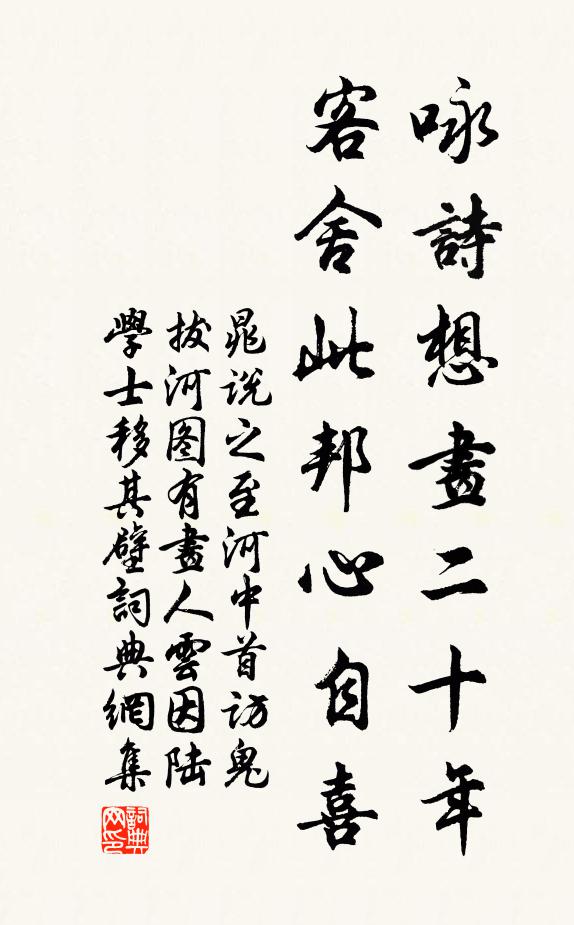 咏詩想畫二十年
客舍此邦心自喜
晁說之至河中首訪鬼
拔河图有畫人雲因陆
學士移其壁詞典網集
詞典网印